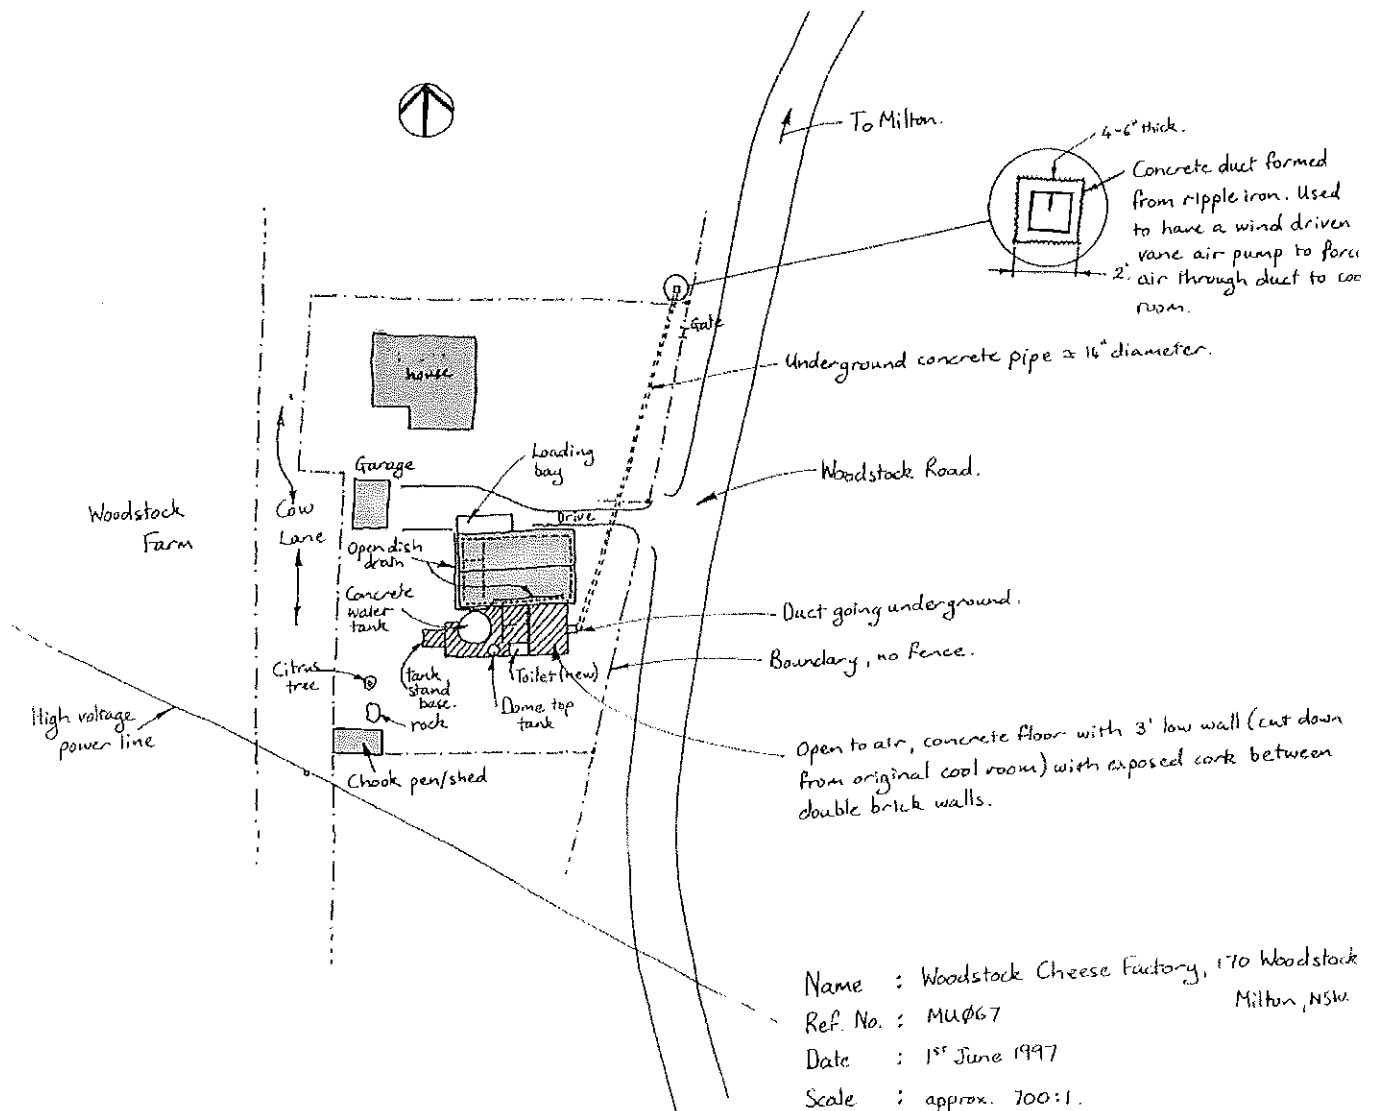 To Milton.
4-6" thick.
Concrete duct formed
from ripple iron. Used
to have a wind driven
vane air pump to forc
air through duct to coo
room.
2'
Gate
Underground concrete pipe ≈ 14" diameter.
house
Loading
bay
Garage
Woodstock Road.
Woodstock
Farm
Cow
Lane
Drive
Open dish
drain
Concrete
water
tank
Duct going underground.
Boundary, no fence.
Citrus
tree
tank
stand
base.
Toilet (new)
Dome top
tank
rock
High voltage
power line
Chook pen/shed
Open to air, concrete floor with 3' low wall (cut down
from original cool room) with exposed cork between
double brick walls.
Name : Woodstock Cheese Factory, 170 Woodstock
Milton, NSW.
Ref. No. : MUØ67
Date : 1st June 1997
Scale : approx. 700:1.